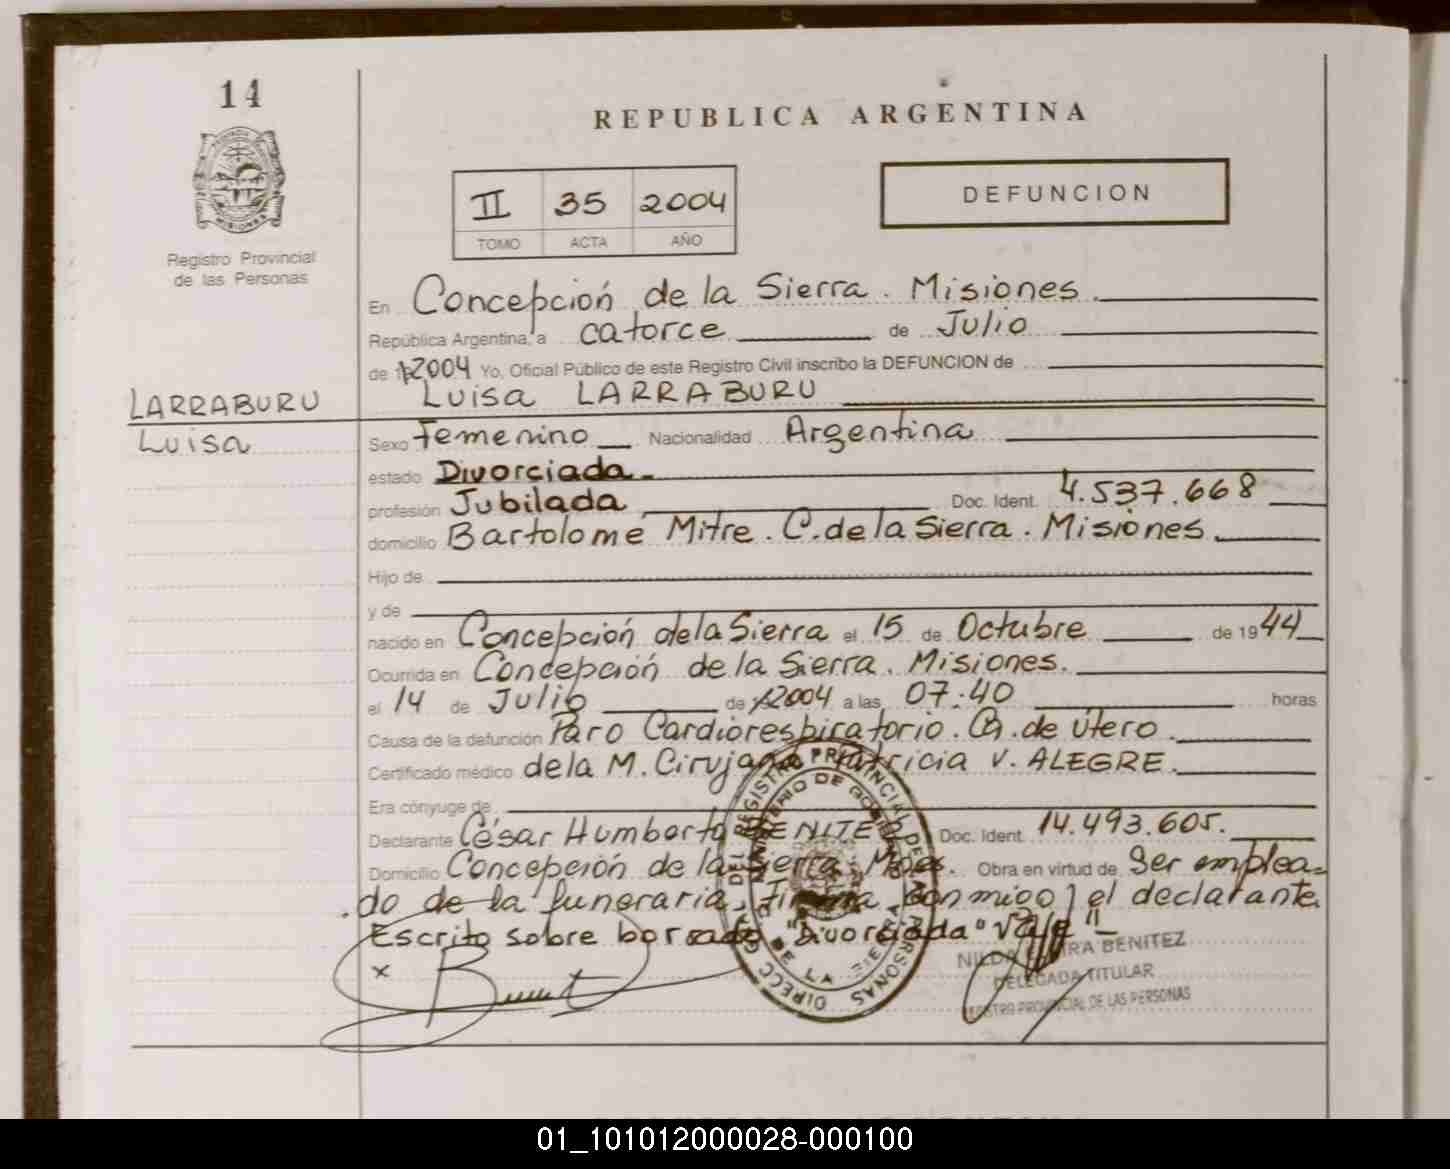 14
REPUBLICA ARGENTINA
II 35 2004
TOMO ACTA AÑO
DEFUNCION
Registro Provincial
de las Personas
LARRABURU
Luisa
En Concepción de la Sierra. Misiones
República Argentina, a catorce de Julio
de 2004 Yo, Oficial Público de este Registro Civil inscribo la DEFUNCION de
Luisa LARRABURU
Sexo Femenino Nacionalidad Argentina
estado Divorciada
profesión Jubilada Doc. Ident. 4.537.668
domicilio Bartolomé Mitre. C. de la Sierra. Misiones
Hijo de
y de
nacido en Concepción de la Sierra el 15 de Octubre de 1944
Ocurrida en Concepción de la Sierra. Misiones.
el 14 de Julio de 2004 a las 07:40 horas
Causa de la defunción Paro Cardiorespiratorio. Ca. de útero.
Certificado médico de la M. Cirujana Patricia V. ALEGRE.
Era cónyuge de
Declarante César Humberto BENITEZ Doc. Ident. 14.493.605.
Domicilio Concepción de la Sierra Mnes. Obra en virtud de Ser emplea-
do de la funeraria. Firma conmigo el declarante.
Escrito sobre borrado "Divorciada" Vale"
x
NILDA BENITEZ
DELEGADA TITULAR
REGISTRO PROVINCIAL DE LAS PERSONAS
DIRECC GRAL DEL REGISTRO PROVINCIAL DE LAS PERSONAS
MINISTERIO DE GOBIERNO
DE LA SIERRA
01_101012000028-000100